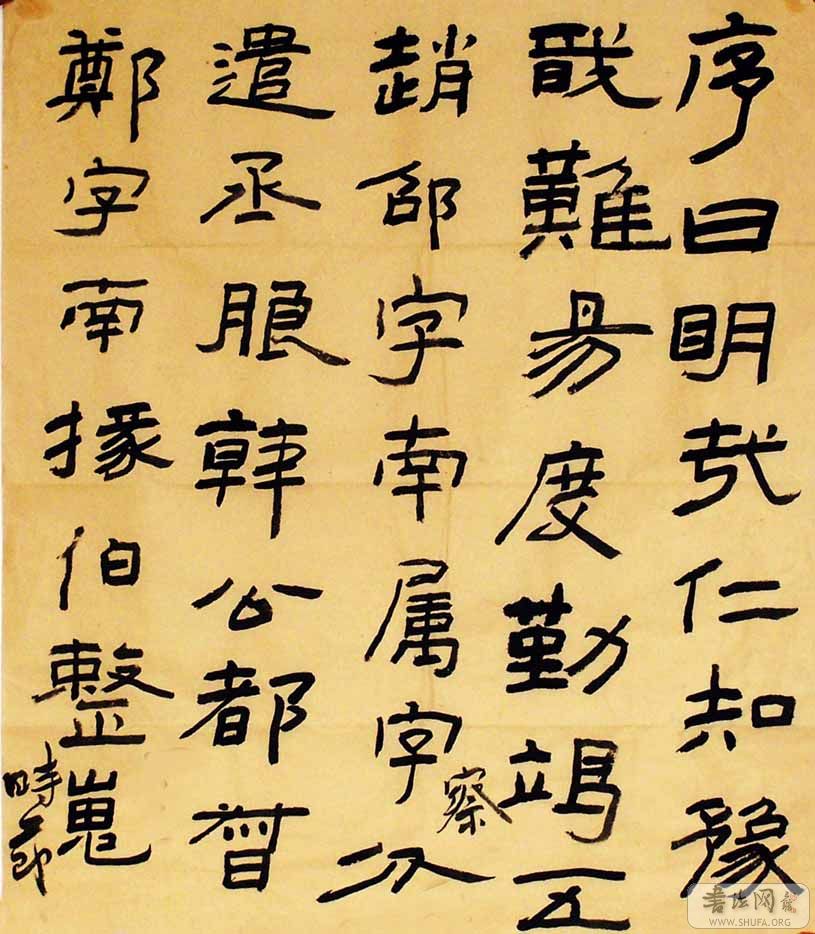 序曰明哉仁知豫
戠難易度勤竭五
察
趙邵字南属字分
遣丞朖韓公都督
鄭字南掾伯整嵬
時節
书法网
WWW.SHUFA.ORG